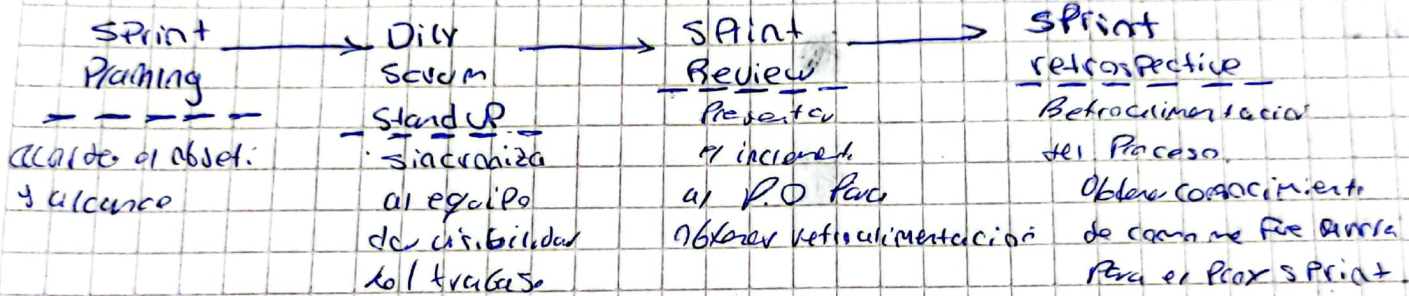 Sprint
Planing
acorde el objet.
y alcance
Dily
Scrum
Stand up
sincroniza
al equipo
da visibilidad
del trabajo
Sprint
Review
Presentar
el increment.
al P.O Para
obtener retroalimentación
Sprint
retrospective
Retroalimentacion
del Proceso.
Obtener conocimiento
de como me fue
Para el Prox sprint